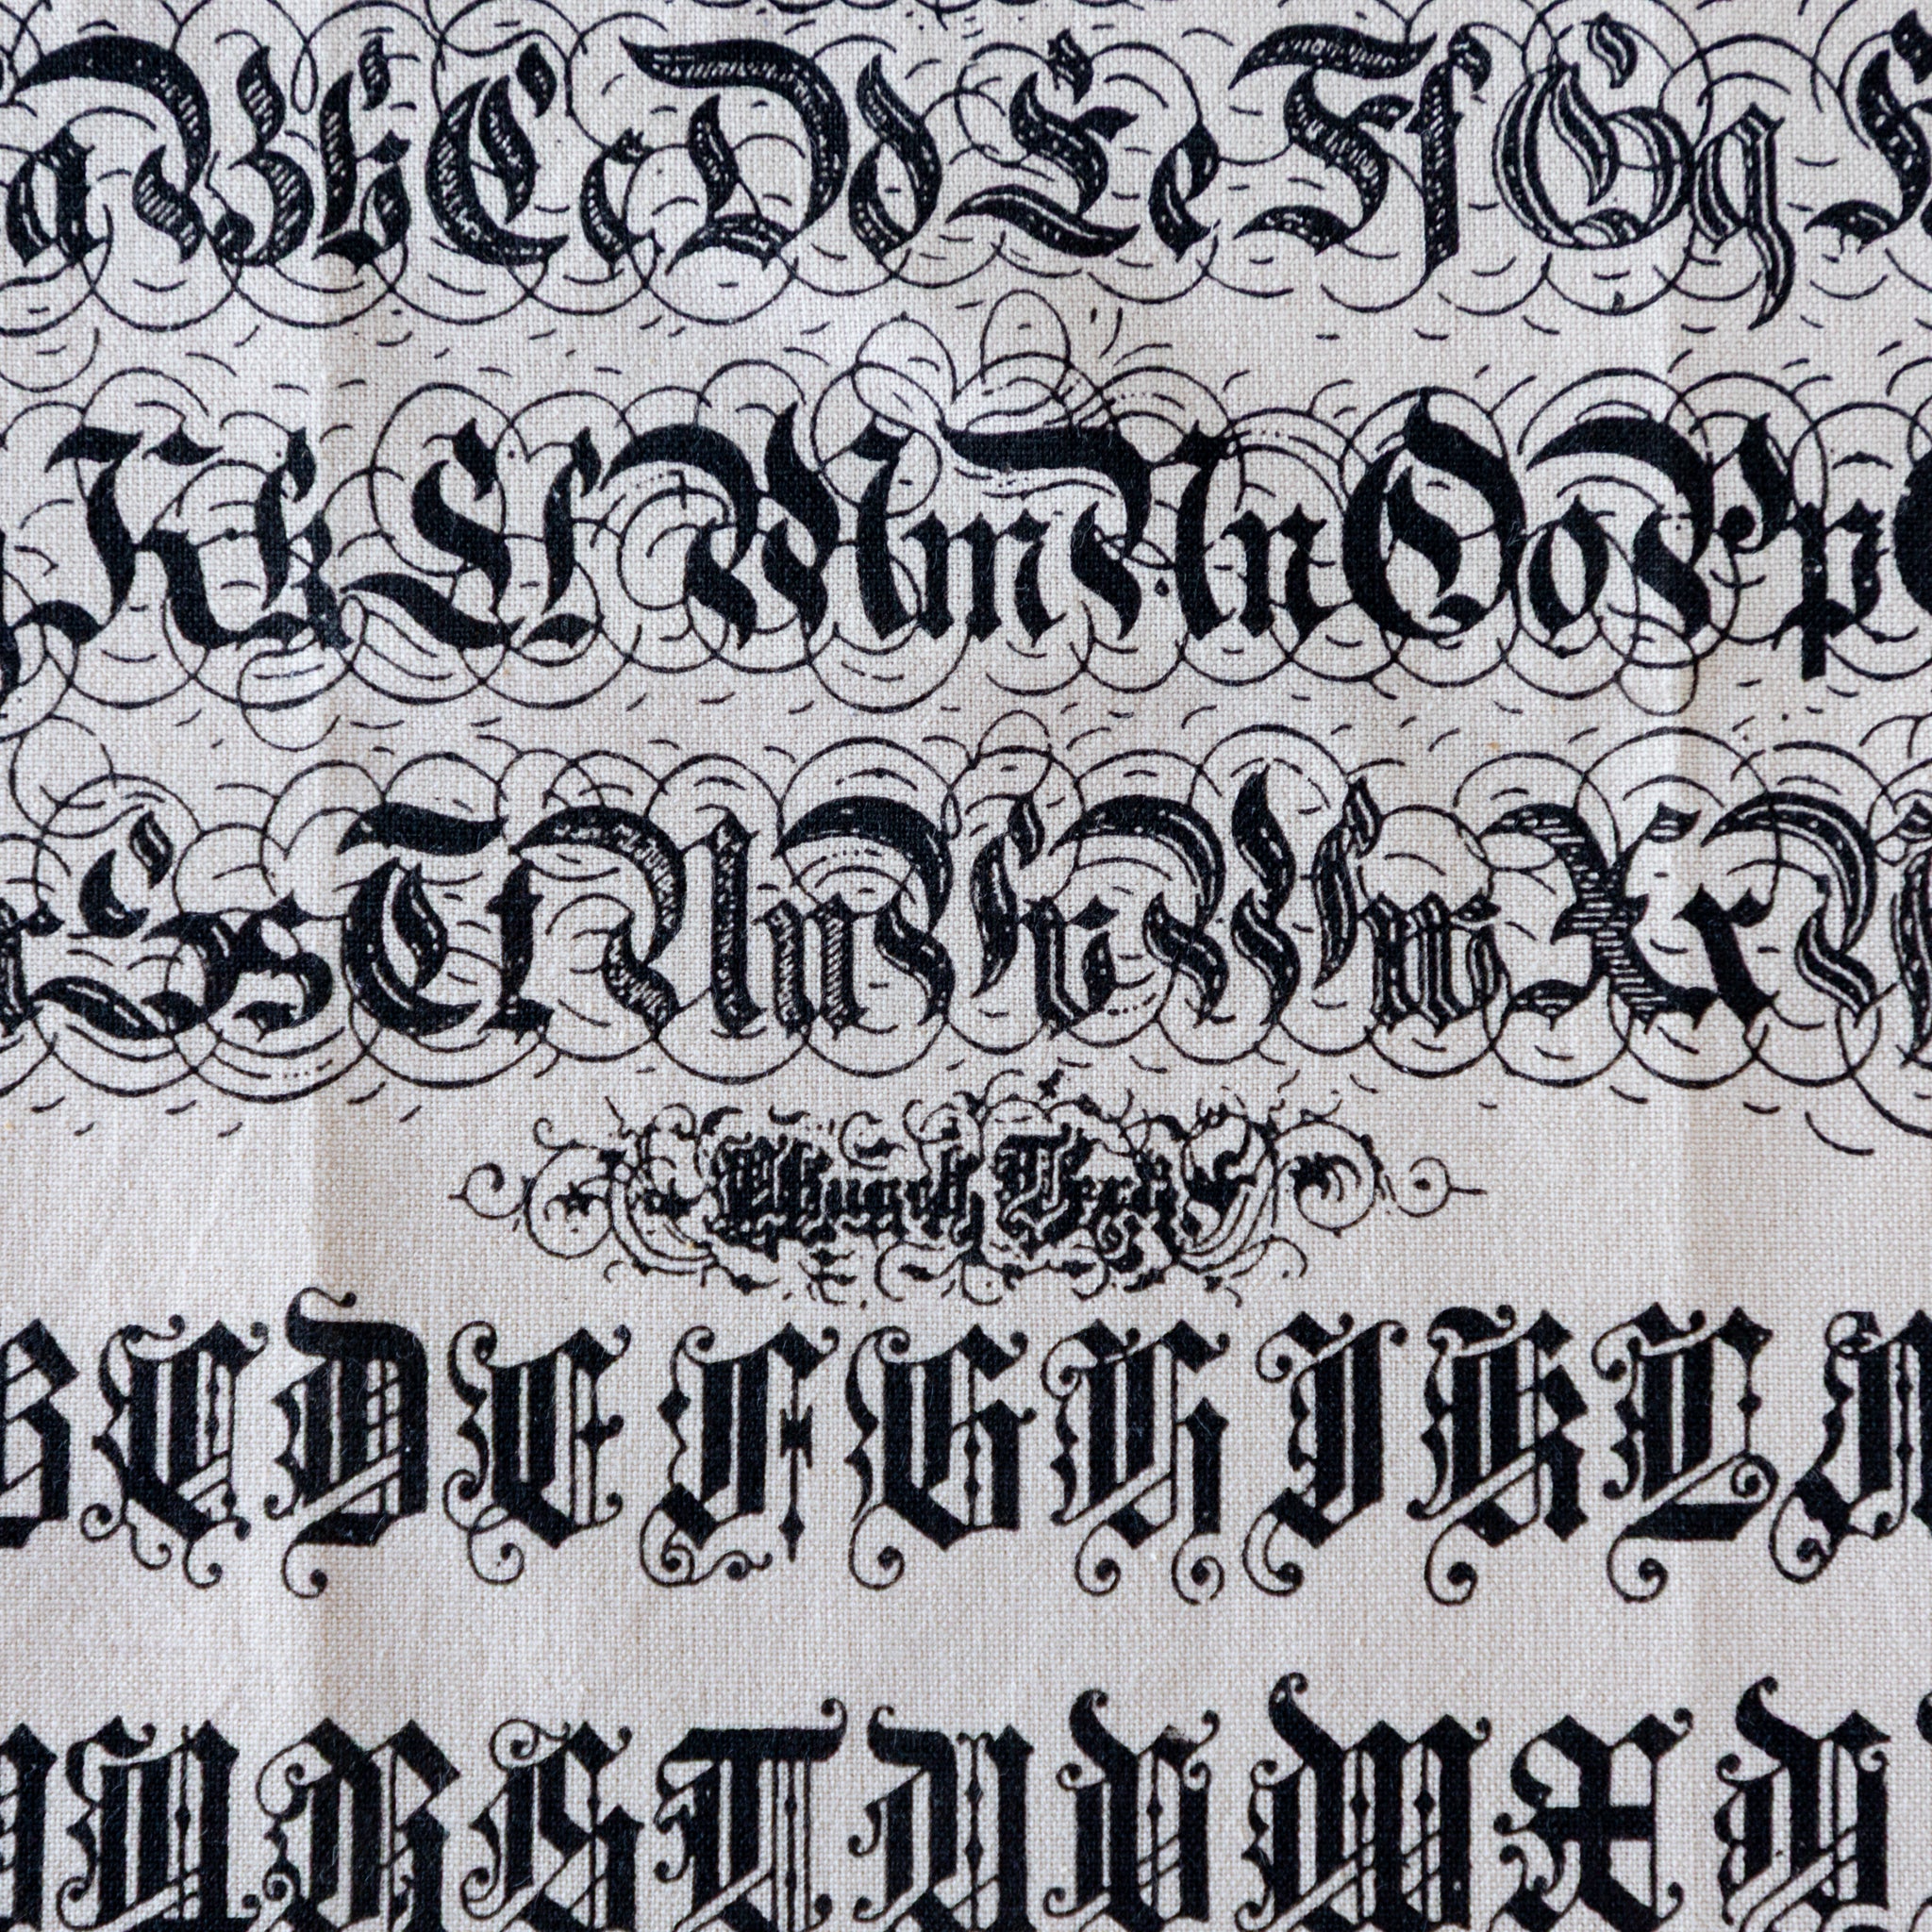 a B b C c D d E e F f G g
K k L l M m N n O o P p
S s T t U u V v W w X x
Church Text
B C D E F G H I K L M
Q R S T U V W X Y